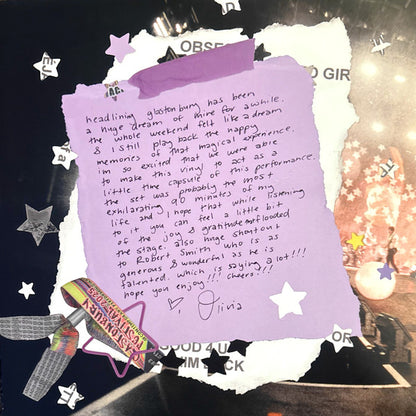 OBSE
D GIR
headlining glastonbury has been
a huge dream of mine for awhile.
the whole weekend felt like a dream
& i still play back the happy
memories of that magical experience.
im so excited that we were able
to make this vinyl to act as a
little time capsule of this performance.
the set was probably the most
exhilarating 90 minutes of my
life and i hope that while listening
to it you can feel a little bit
of the joy & gratitude that flooded
the stage. also huge shoutout
to Robert Smith who is as
generous & wonderful as he is
talented. which is saying a lot!!!
hope you enjoy!!! cheers!!!
♡, Olivia
GLASTONBURY
FESTIVAL 2025
GOOD 4 U
OR